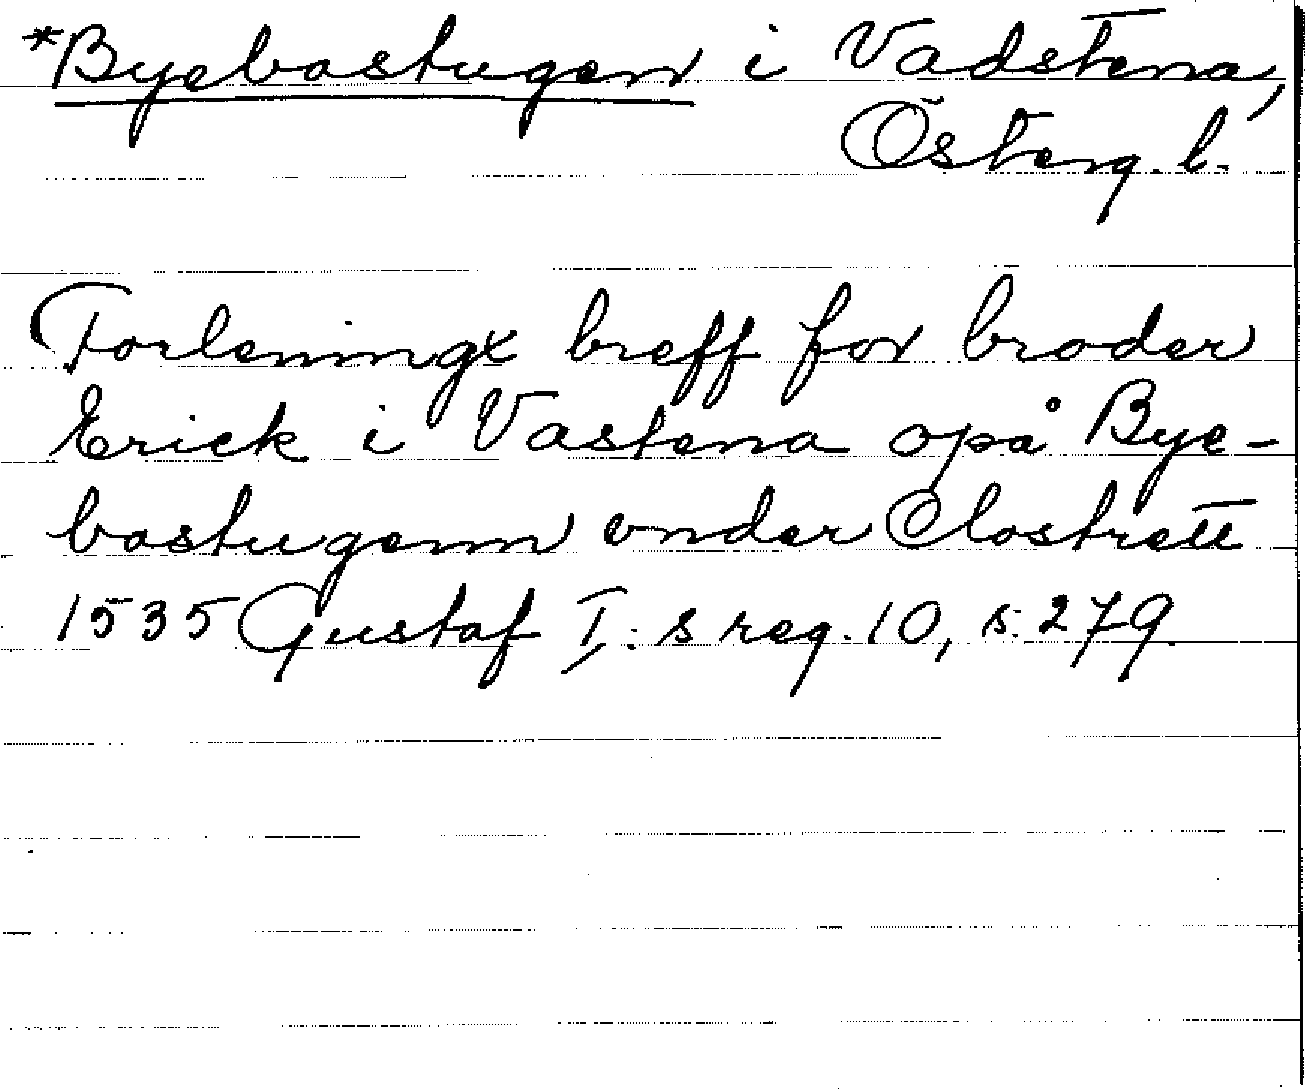 *Byebastugen i Vadstena,
Österg. l.
Forleningx breff for broder
Erick i Vastena opå Bye-
bastugenn onder Clostrett
1535 Gustaf I:s reg. 10, s. 279.